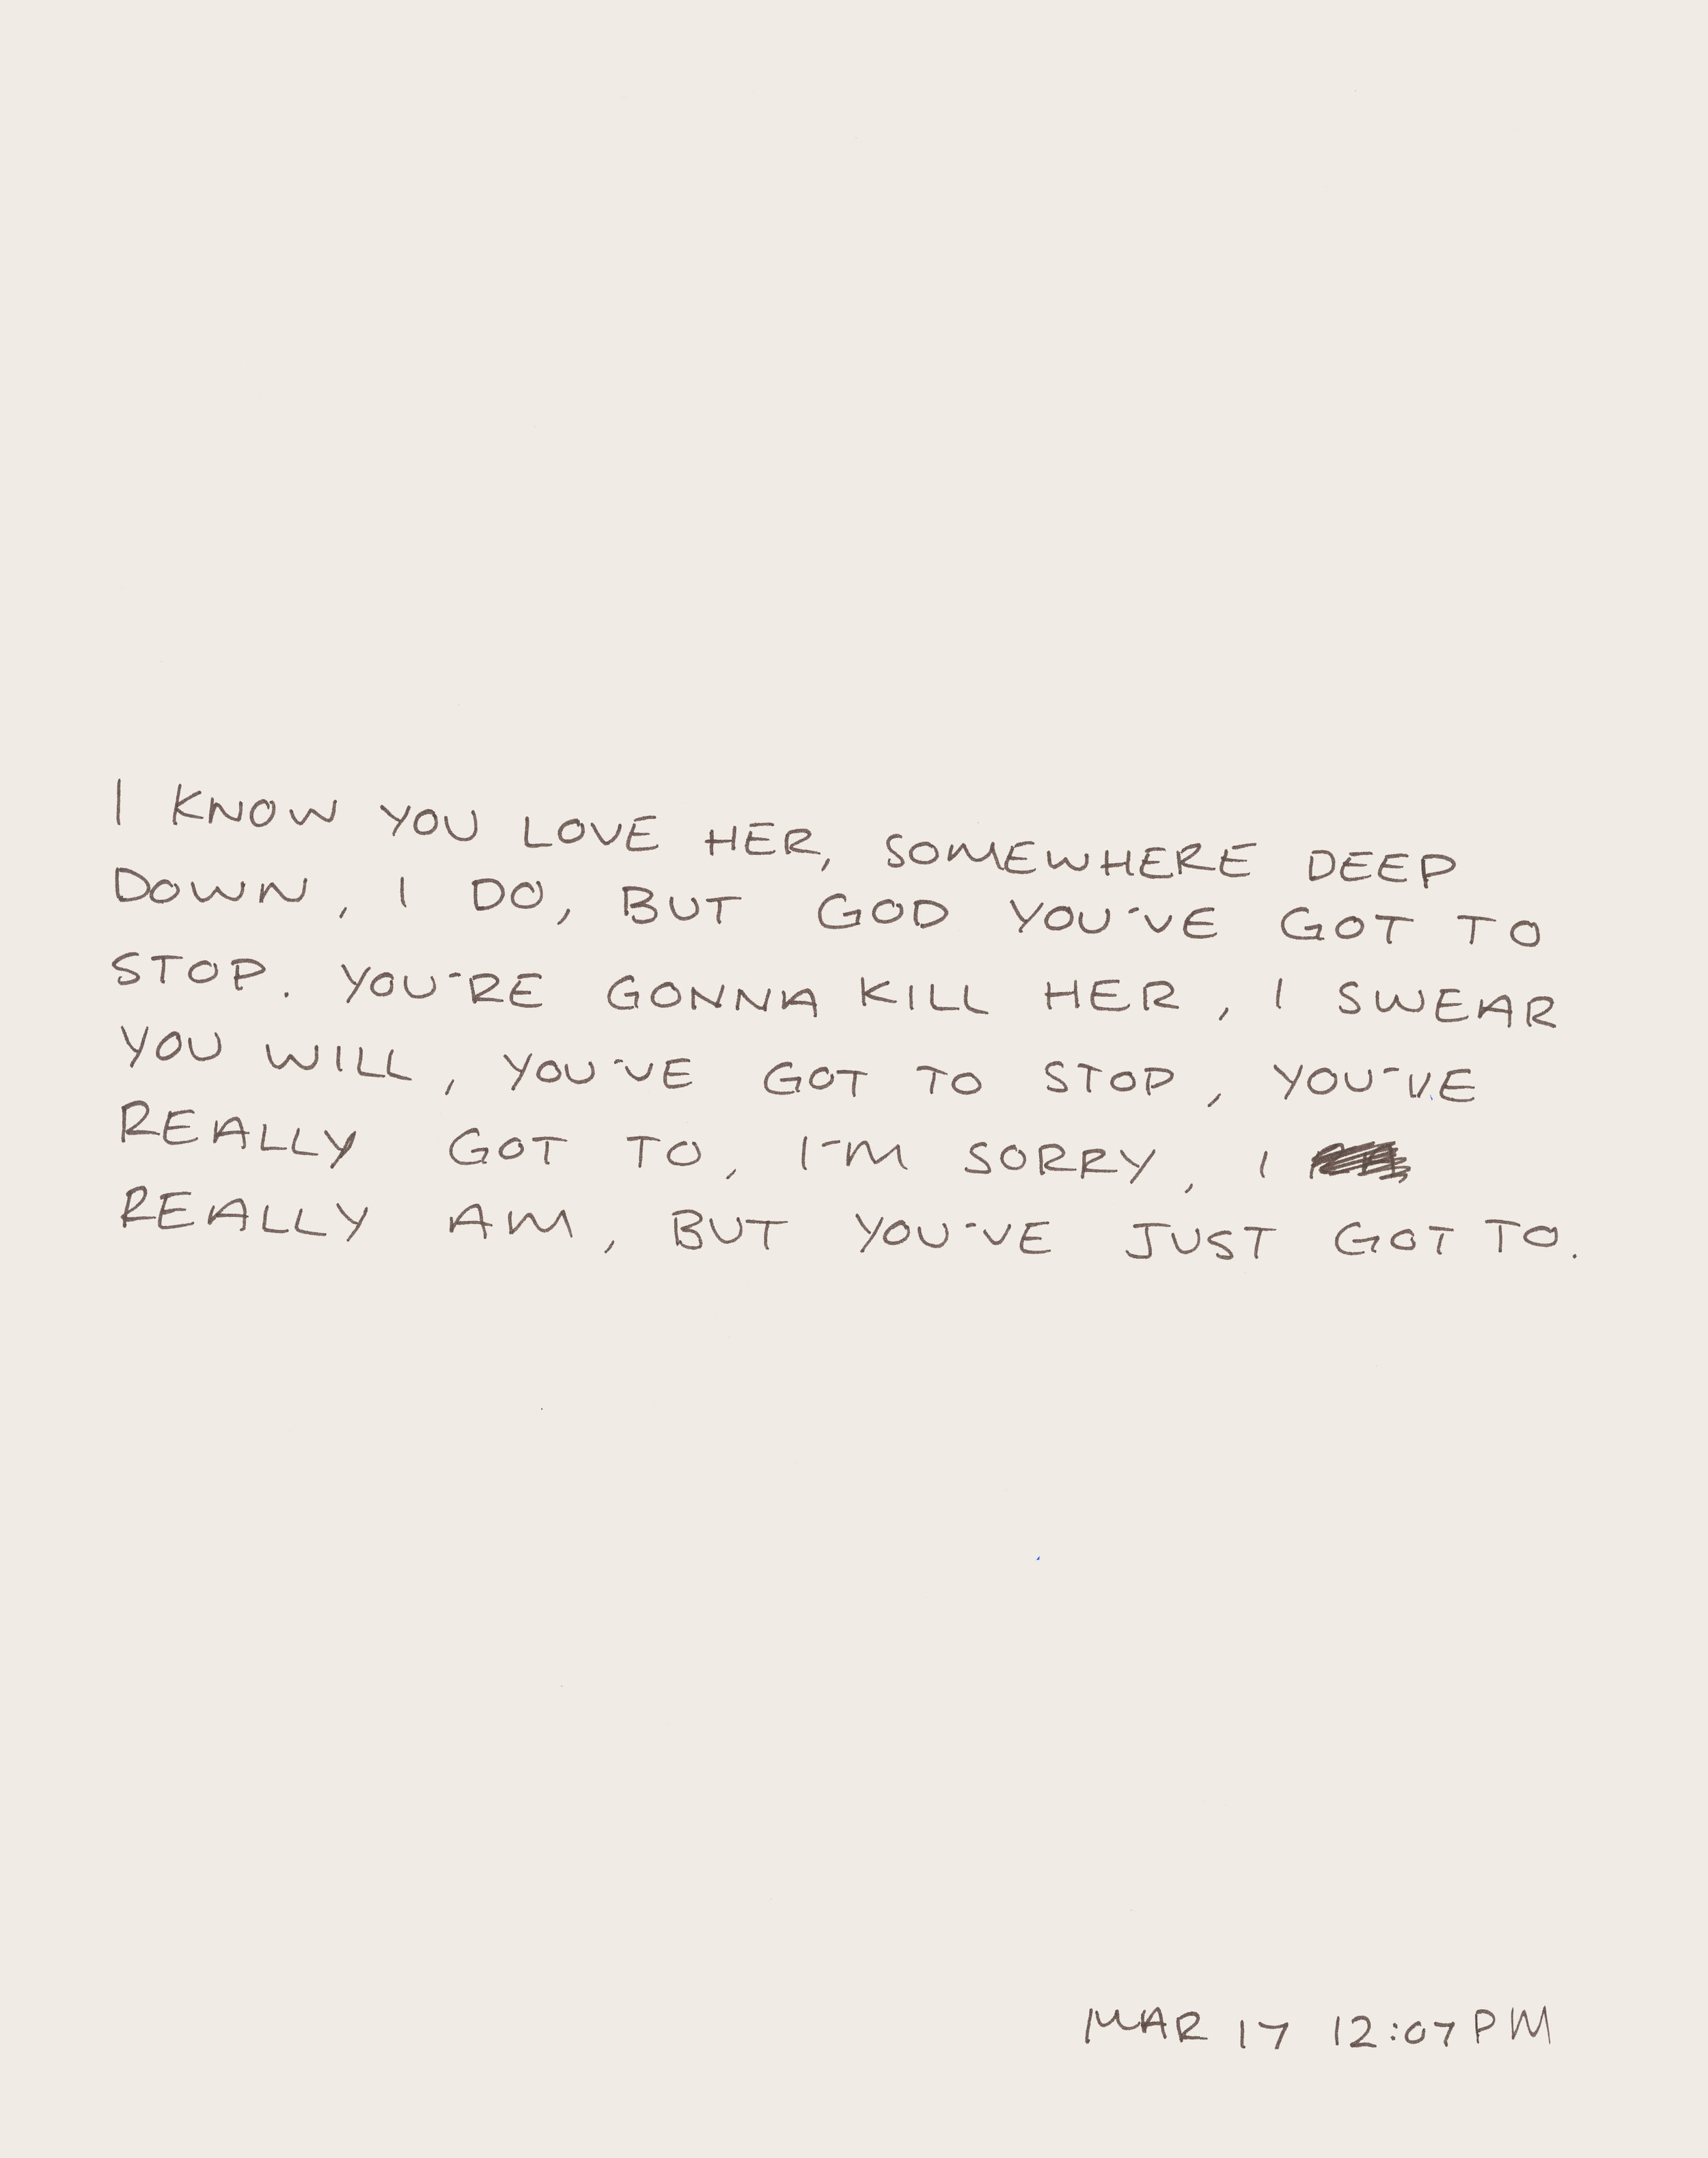 I KNOW YOU LOVE HER, SOMEWHERE DEEP
DOWN, I DO, BUT GOD YOU'VE GOT TO
STOP. YOU'RE GONNA KILL HER, I SWEAR
YOU WILL, YOU'VE GOT TO STOP, YOU'VE
REALLY GOT TO, I'M SORRY, I
REALLY AM, BUT YOU'VE JUST GOT TO.
MAR 17 12:07PM